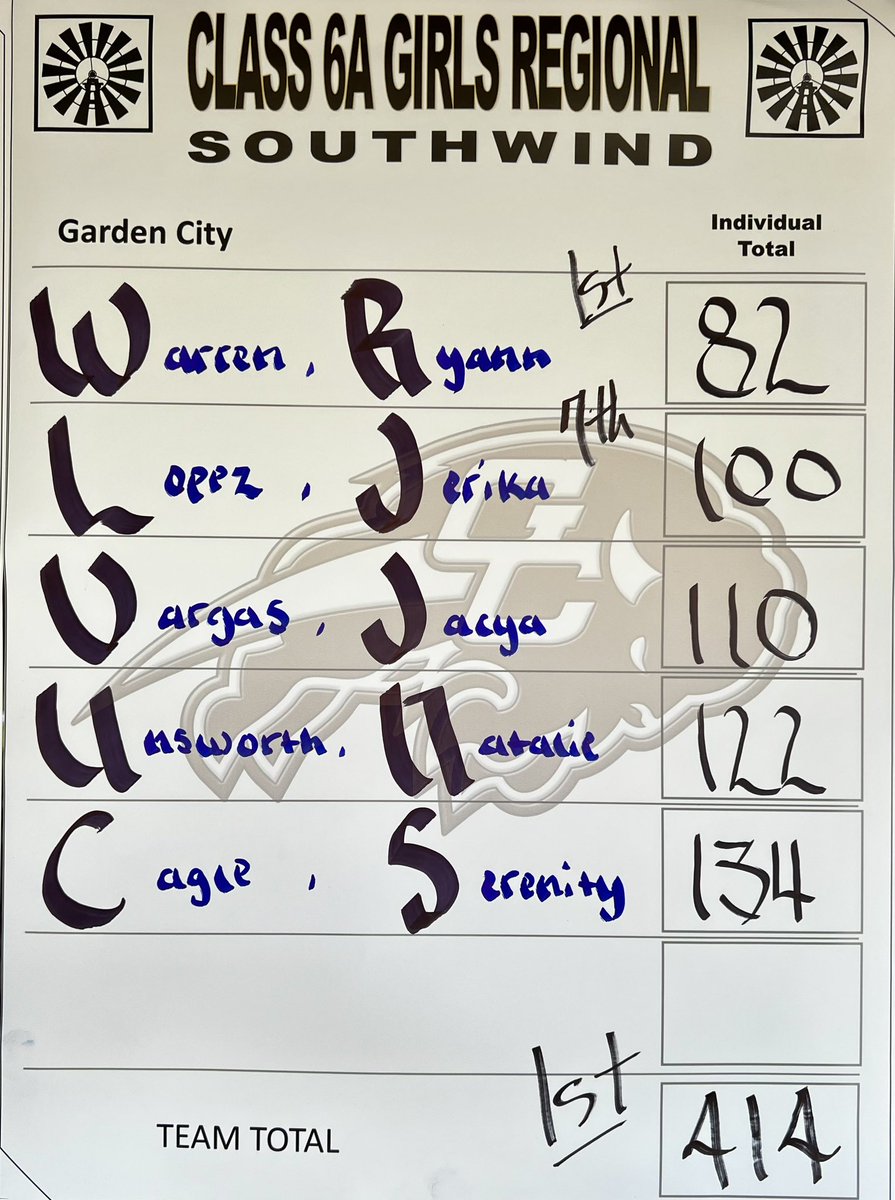 CLASS 6A GIRLS REGIONAL
SOUTHWIND
Garden City
Individual
Total
1st
Warren, Ryann 82
7th
Lopez, Jerika 100
Vargas, Jacya 110
Unsworth, Natalie 122
Cagle, Serenity 134
1st
TEAM TOTAL 414